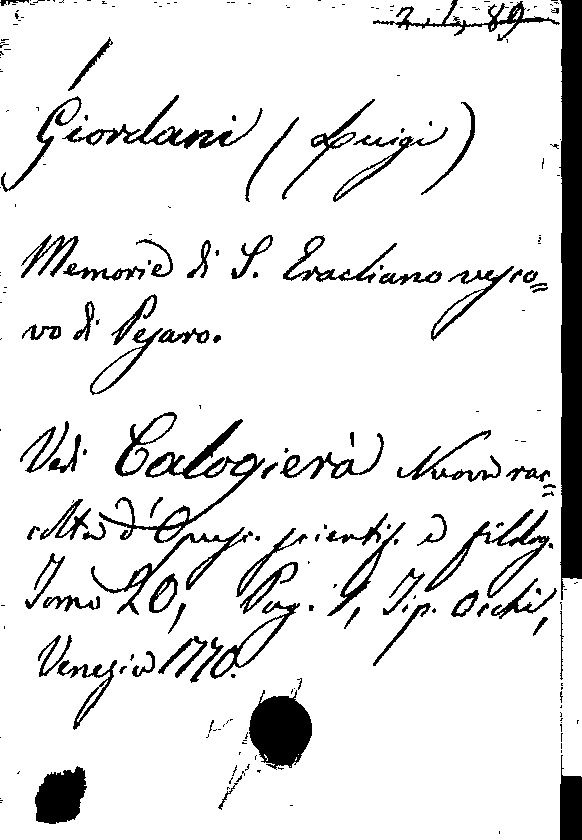 Giordani (Luigi)
Memorie di S. Eracliano vesco=
vo di Pesaro.
Vedi Calogierà Nuova rac=
colta d'Opusc. scientif. e filolog.
Tomo 20, Pag. 1, Tip. Occhi,
Venezia 1770.